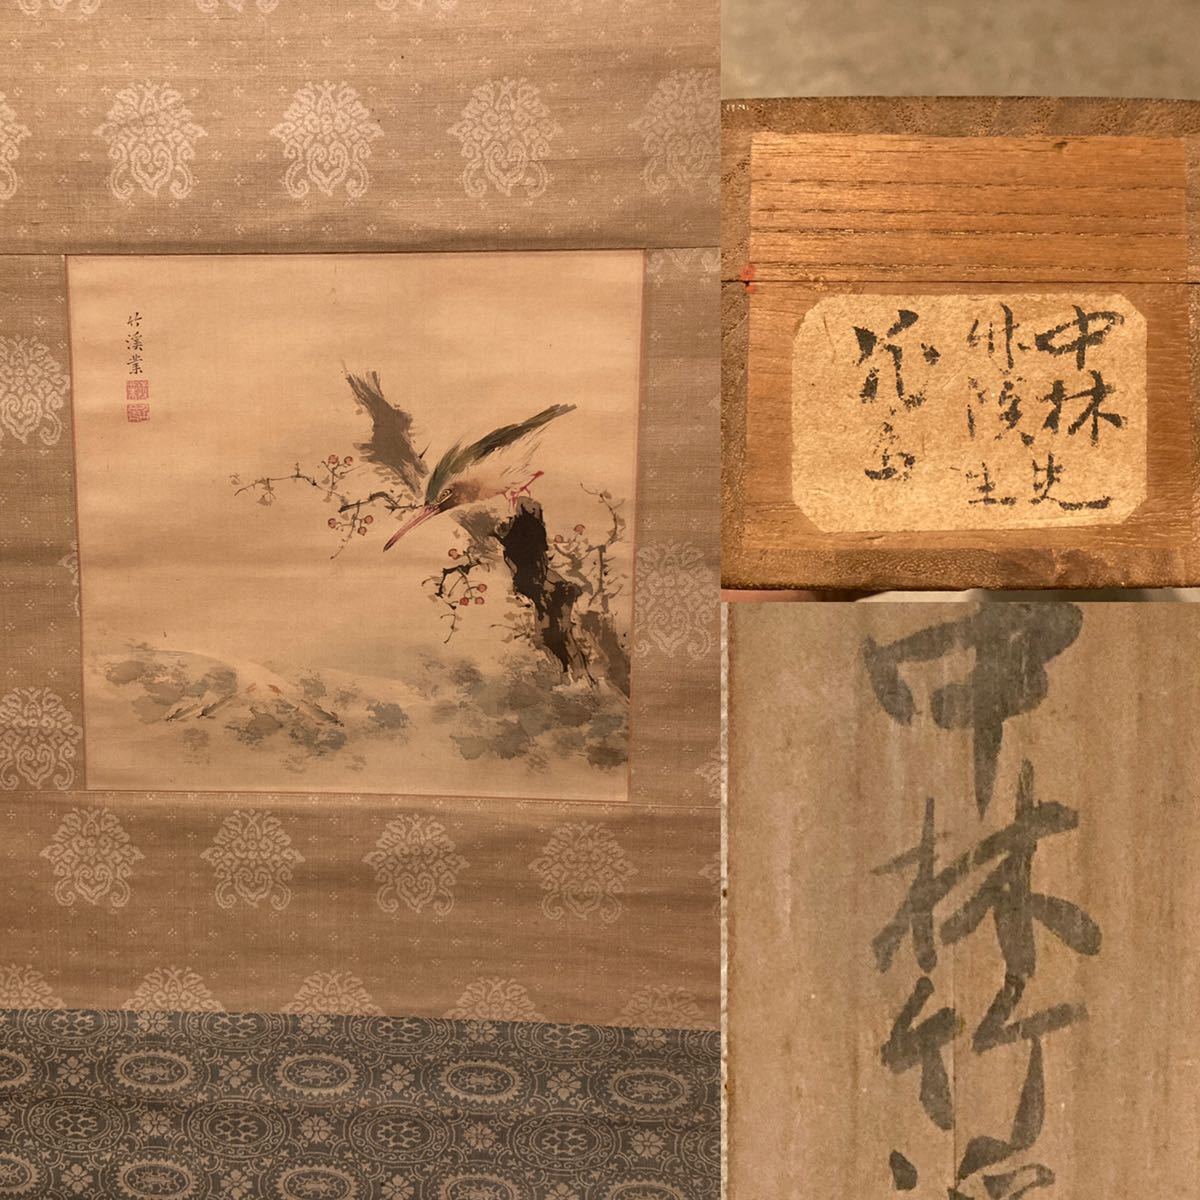 竹溪業
中林
竹渓先
生
花鳥
中林竹